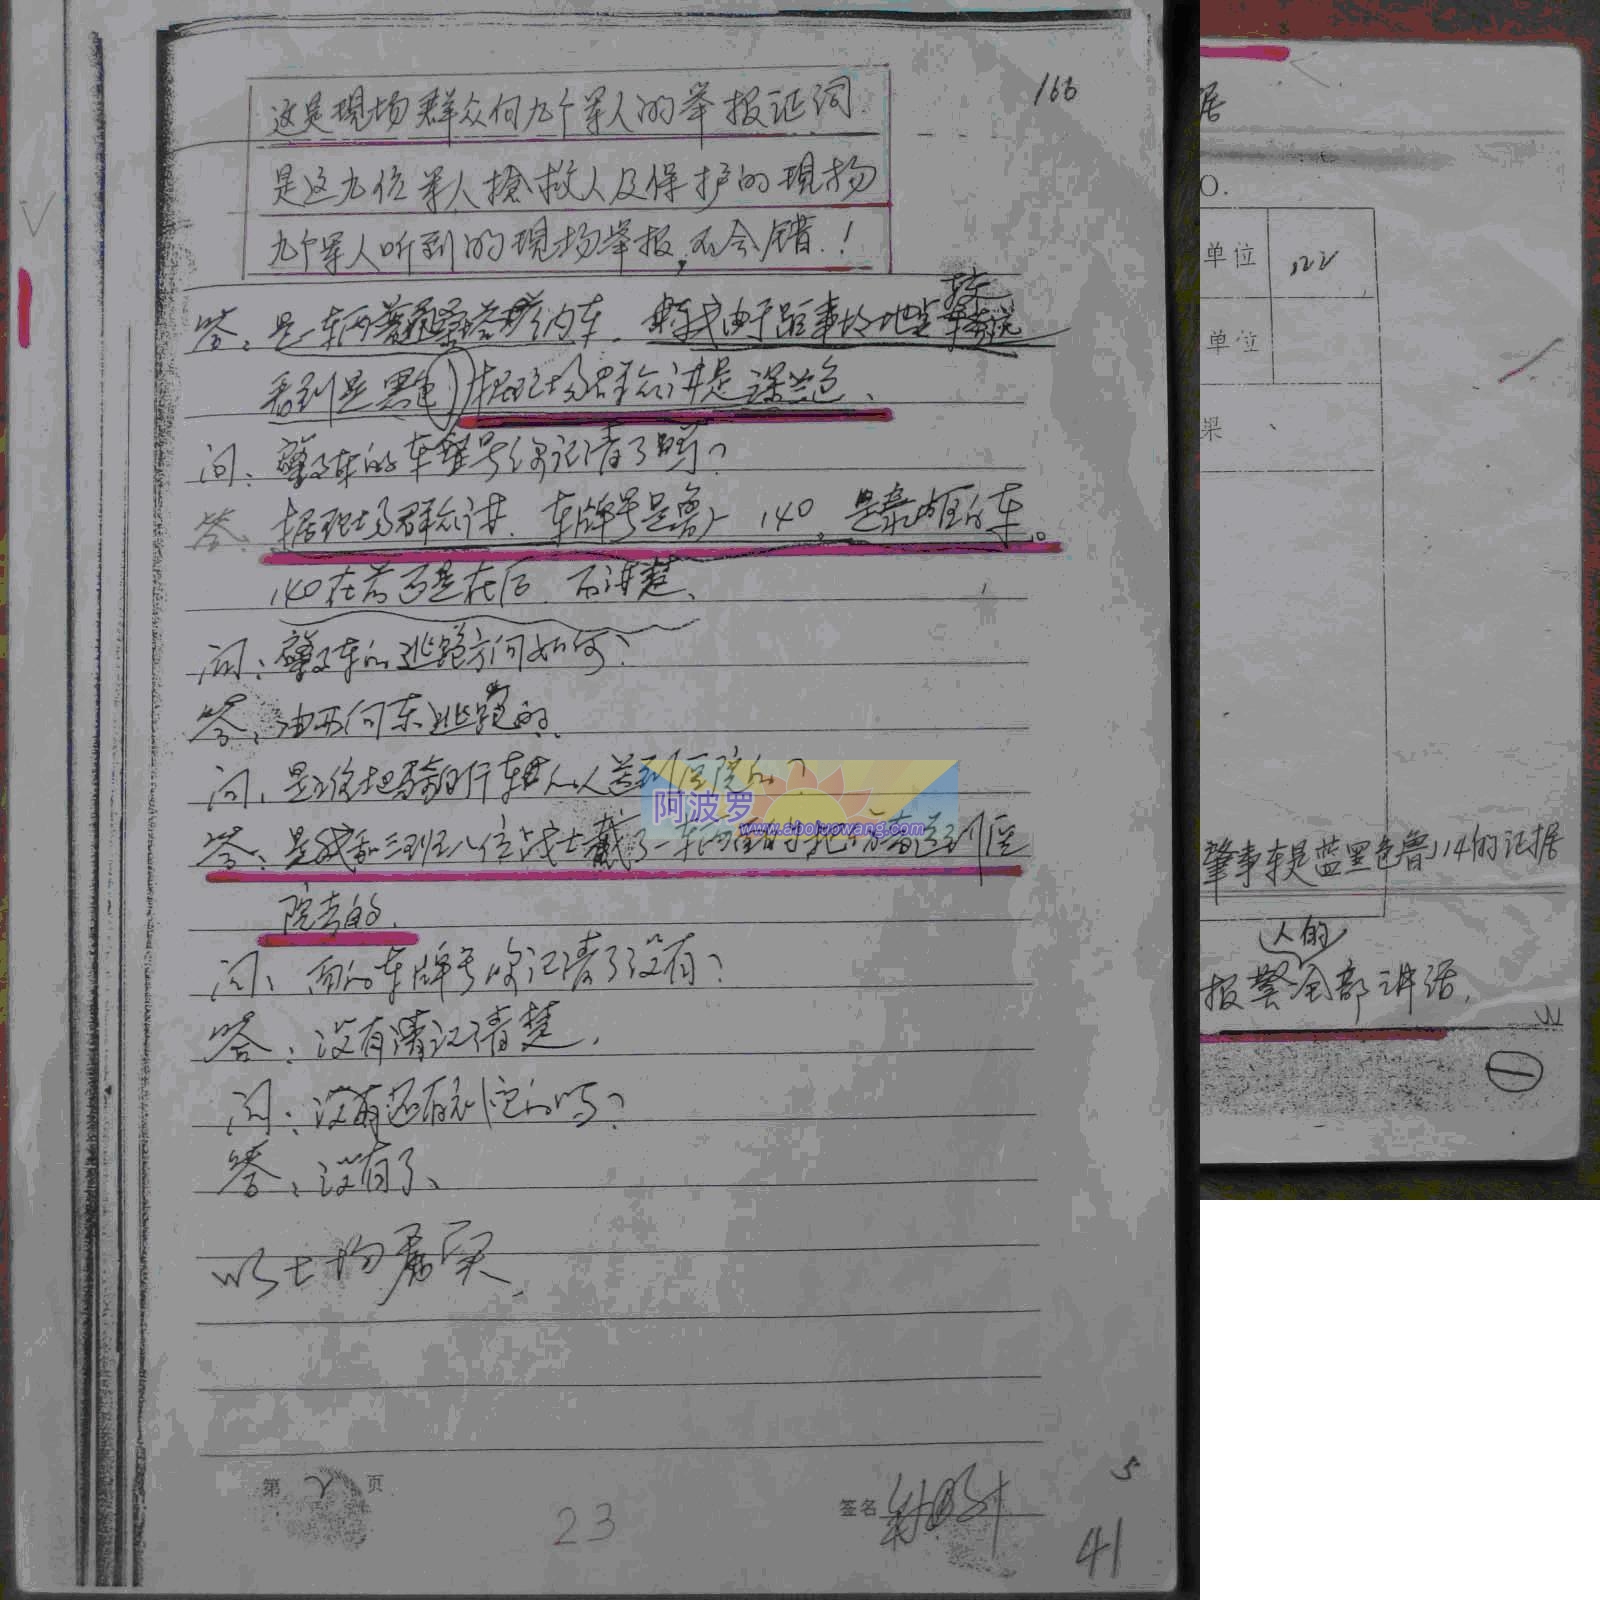 166
这是現场群众向九个军人的举报证词.
是这九位军人搶救人及保护的現场
九个军人听到的現场举报,不会错.!
答:是一车两 车. 我由于距事故地点较远
看到是黑色)据现场群众讲是深兰色、
问:肇事车的车牌号你记清了吗?
答:据现场群众讲.车牌号是鲁J 140 是 的车.
140在前还是在后.不清楚、
问:肇事车的逃跑方向如何?
答:由西向东逃跑的.
问:是谁把骑自行车 人送到医院的?
答:是我和三班八位战士截了一车两 把 者送到医
院去的.
问:面的车牌号你记清了没有?
答:没有清记清楚.
问:没有还有补充的吗?
答:没有了、
以上均属实.
第 2 页
签名
23
5
41
阿波罗
www.aboluowang.com
据
O.
单位 122
单位
果
肇事车是蓝黑色鲁J14的证据
人的
报警全部讲话.
1